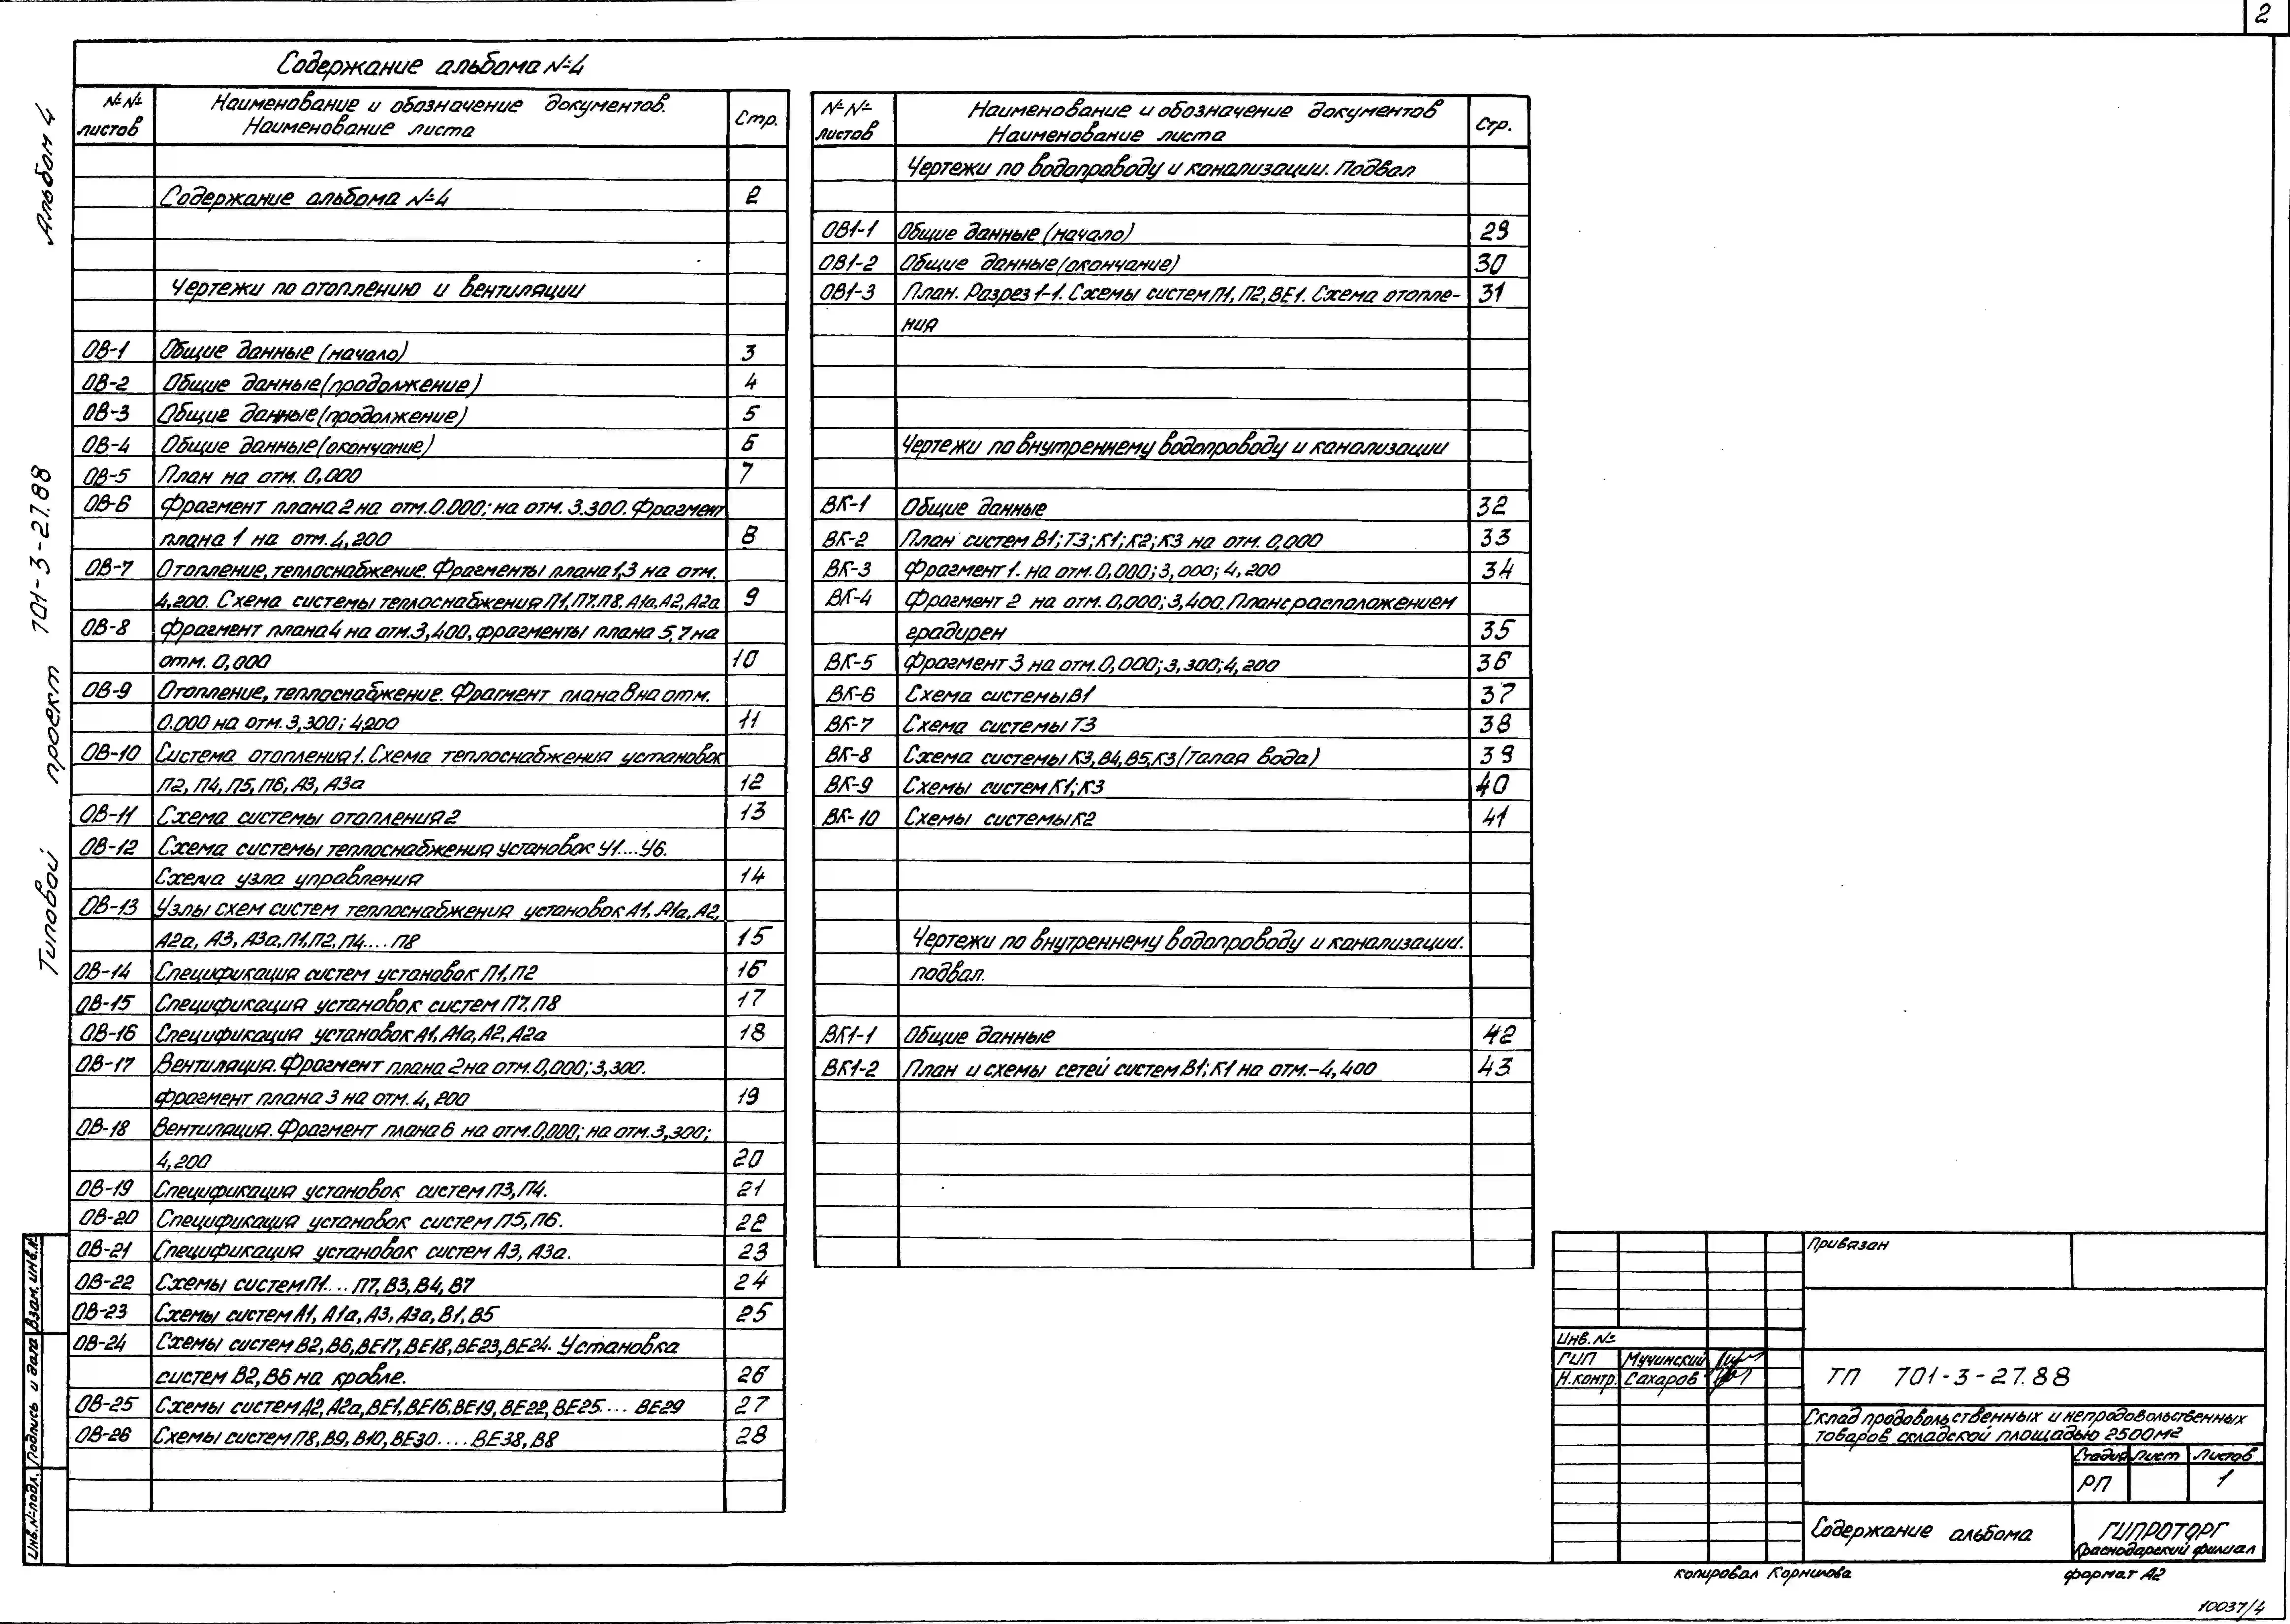 2
Содержание альбома №4
№№ листов
Наименование и обозначение документов.
Наименование листа
Стр.
Содержание альбома №4 2
Чертежи по отоплению и вентиляции
ОВ-1 Общие данные (начало) 3
ОВ-2 Общие данные (продолжение) 4
ОВ-3 Общие данные (продолжение) 5
ОВ-4 Общие данные (окончание) 6
ОВ-5 План на отм. 0,000 7
ОВ-6 Фрагмент плана 2 на отм. 0.000; на отм. 3.300. Фрагмент
плана 1 на отм. 4,200 8
ОВ-7 Отопление, теплоснабжение. Фрагменты плана 1,3 на отм.
4,200. Схема системы теплоснабжения П1, П7, П8, А1а, А2, А2а 9
ОВ-8 Фрагмент плана 4 на отм. 3,400, фрагменты плана 5,7 на
отм. 0,000 10
ОВ-9 Отопление, теплоснабжение. Фрагмент плана 8 на отм.
0.000 на отм. 3,300; 4,200 11
ОВ-10 Система отопления 1. Схема теплоснабжения установок
П2, П4, П5, П6, А3, А3а 12
ОВ-11 Схема системы отопления 2 13
ОВ-12 Схема системы теплоснабжения установок У1....У6.
Схема узла управления 14
ОВ-13 Узлы схем систем теплоснабжения установок А1, А1а, А2,
А2а, А3, А3а, П1, П2, П4....П8 15
ОВ-14 Спецификация систем установок П1, П2 16
ОВ-15 Спецификация установок систем П7, П8 17
ОВ-16 Спецификация установок А1, А1а, А2, А2а 18
ОВ-17 Вентиляция. Фрагмент плана 2 на отм. 0,000; 3,300.
Фрагмент плана 3 на отм. 4,200 19
ОВ-18 Вентиляция. Фрагмент плана 6 на отм. 0,000; на отм. 3,300;
4,200 20
ОВ-19 Спецификация установок систем П3, П4. 21
ОВ-20 Спецификация установок систем П5, П6. 22
ОВ-21 Спецификация установок систем А3, А3а. 23
ОВ-22 Схемы систем П1....П7, В3, В4, В7 24
ОВ-23 Схемы систем А1, А1а, А3, А3а, В1, В5 25
ОВ-24 Схемы систем В2, В6, ВЕ17, ВЕ18, ВЕ23, ВЕ24. Установка
систем В2, В6 на кровле. 26
ОВ-25 Схемы систем А2, А2а, ВЕ1, ВЕ16, ВЕ19, ВЕ22, ВЕ25.... ВЕ29 27
ОВ-26 Схемы систем П8, В9, В10, ВЕ30....ВЕ38, В8 28
№№ листов
Наименование и обозначение документов
Наименование листа
Стр.
Чертежи по водопроводу и канализации. Подвал
ОВ1-1 Общие данные (начало) 29
ОВ1-2 Общие данные (окончание) 30
ОВ1-3 План. Разрез 1-1. Схемы систем П1, П2, ВЕ1. Схема отопле- 31
ния
Чертежи по внутреннему водопроводу и канализации
ВК-1 Общие данные 32
ВК-2 План систем В1; Т3; К1; К2; К3 на отм. 0,000 33
ВК-3 Фрагмент 1. на отм. 0,000; 3,000; 4,200 34
ВК-4 Фрагмент 2 на отм. 0,000; 3,400. План с расположением
градирен 35
ВК-5 Фрагмент 3 на отм. 0,000; 3,300; 4,200 36
ВК-6 Схема системы В1 37
ВК-7 Схема системы Т3 38
ВК-8 Схема системы К3, В4, В5, К3 (Талая вода) 39
ВК-9 Схемы систем К1; К3 40
ВК-10 Схемы системы К2 41
Чертежи по внутреннему водопроводу и канализации.
подвал.
ВК1-1 Общие данные 42
ВК1-2 План и схемы сетей систем В1; К1 на отм. -4,400 43
Альбом 4
Типовой проект 701-3-27.88
Взам. инв.№
Подпись и дата
Инв.№ подл.
Привязан
Инв. №
ГИП Мучинский
Н.контр. Сахаров
ТП 701-3-27.88
Склад продовольственных и непродовольственных
товаров складской площадью 2500м2
Стадия Лист Листов
РП 1
Содержание альбома
ГИПРОТОРГ
Краснодарский филиал
копировал Корнилова
формат А2
10037/4